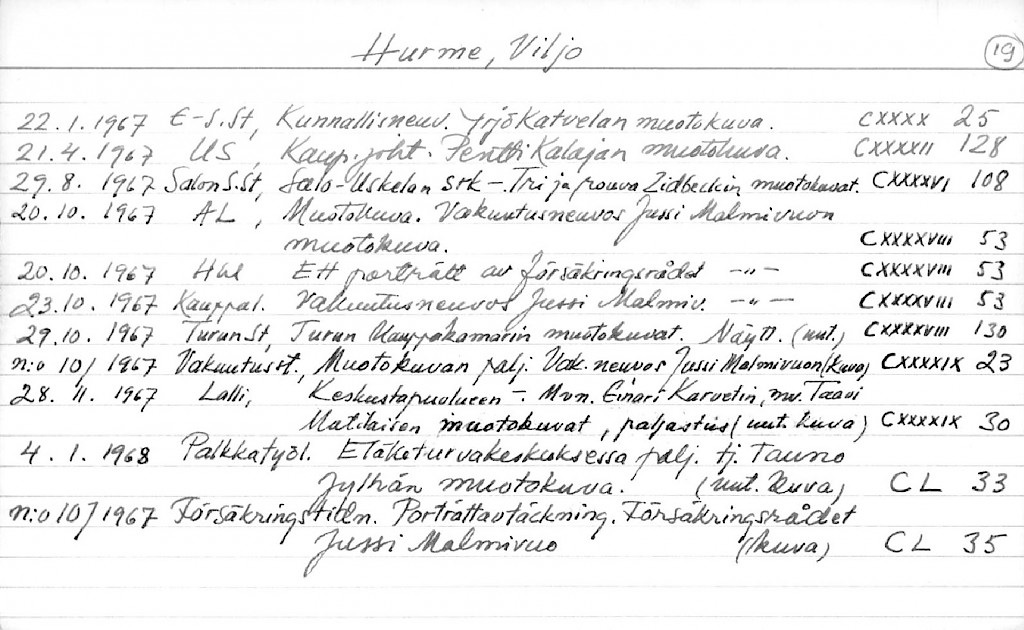 Hurme, Viljo 19
22.1.1967 E-S.St, Kunnallisneuv. Yrjö Katvelan muotokuva. CXXXX 25
21.4.1967 US, Kaup.joht. Pentti Kalajan muotokuva. CXXXXII 128
29.8.1967 Salon S.St, Salo-Uskelan srk – Tri ja rouva Zidbeckin muotokuvat. CXXXXVI 108
20.10.1967 AL, Muotokuva. Vakuutusneuvos Jussi Malmivuon
muotokuva. CXXXXVIII 53
20.10.1967 Hbl Ett porträtt av försäkringsrådet -"- CXXXXVIII 53
23.10.1967 Kauppal. Vakuutusneuvos Jussi Malmiv. -"- CXXXXVIII 53
29.10.1967 TurunSt, Turun Kauppakamarin muotokuvat. Näytt. (uut.) CXXXXVIII 130
n:o 10/1967 Vakuutusst., Muotokuvan palj. Vak.neuvos Jussi Malmivuon (kuva) CXXXXIX 23
28.11.1967 Lalli, Keskustapuolueen – Mvn. Einari Karvetin, mv. Taavi
Matilaisen muotokuvat, paljastus (uut. kuva) CXXXXIX 30
4.1.1968 Palkkatyöl. Eläketurvakeskuksessa palj. tj. Tauno
Jylhän muotokuva. (uut. kuva) CL 33
n:o 10/1967 Försäkringstidn. Porträttavtäckning. Försäkringsrådet
Jussi Malmivuo (kuva) CL 35